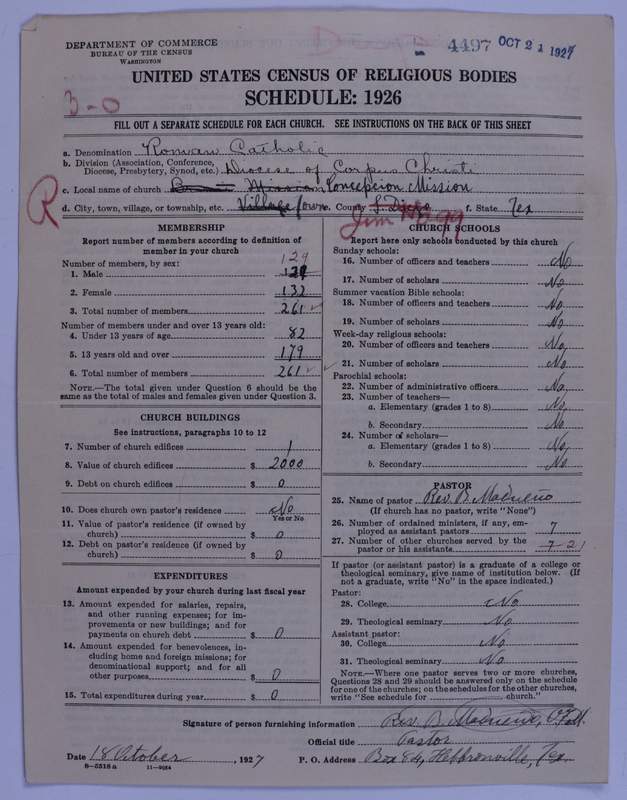 DEPARTMENT OF COMMERCE
BUREAU OF THE CENSUS
WASHINGTON
4497 OCT 21 1927
UNITED STATES CENSUS OF RELIGIOUS BODIES
SCHEDULE: 1926
3-0
FILL OUT A SEPARATE SCHEDULE FOR EACH CHURCH. SEE INSTRUCTIONS ON THE BACK OF THIS SHEET
a. Denomination Roman Catholic
b. Division (Association, Conference,
Diocese, Presbytery, Synod, etc.) Diocese of Corpus Christi
R
c. Local name of church Mission Concepcion Mission
d. City, town, village, or township, etc. Village Town e. County f. State Tex
Jim Hogg
MEMBERSHIP
Report number of members according to definition of
member in your church
Number of members, by sex:
129
1. Male
2. Female 132
3. Total number of members 261
Number of members under and over 13 years old:
4. Under 13 years of age 82
5. 13 years old and over 179
6. Total number of members 261
NOTE.—The total given under Question 6 should be the
same as the total of males and females given under Question 3.
CHURCH BUILDINGS
See instructions, paragraphs 10 to 12
7. Number of church edifices 1
8. Value of church edifices $ 2000
9. Debt on church edifices $ 0
10. Does church own pastor's residence No
Yes or No
11. Value of pastor's residence (if owned by
church) $ 0
12. Debt on pastor's residence (if owned by
church) $ 0
EXPENDITURES
Amount expended by your church during last fiscal year
13. Amount expended for salaries, repairs,
and other running expenses; for im-
provements or new buildings; and for
payments on church debt $ 0
14. Amount expended for benevolences, in-
cluding home and foreign missions; for
denominational support; and for all
other purposes $ 0
15. Total expenditures during year $ 0
CHURCH SCHOOLS
Report here only schools conducted by this church
Sunday schools:
16. Number of officers and teachers No
17. Number of scholars No
Summer vacation Bible schools:
18. Number of officers and teachers No
19. Number of scholars No
Week-day religious schools:
20. Number of officers and teachers No
21. Number of scholars No
Parochial schools:
22. Number of administrative officers No
23. Number of teachers—
a. Elementary (grades 1 to 8) No
b. Secondary No
24. Number of scholars—
a. Elementary (grades 1 to 8) No
b. Secondary No
PASTOR
25. Name of pastor Rev. B.
(If church has no pastor, write "None")
26. Number of ordained ministers, if any, em-
ployed as assistant pastors 7
27. Number of other churches served by the
pastor or his assistants 7 21
If pastor (or assistant pastor) is a graduate of a college or
theological seminary, give name of institution below. (If
not a graduate, write "No" in the space indicated.)
Pastor:
28. College No
29. Theological seminary No
Assistant pastor:
30. College No
31. Theological seminary No
NOTE.—Where one pastor serves two or more churches,
Questions 28 and 29 should be answered only on the schedule
for one of the churches; on the schedules for the other churches,
write "See schedule for church."
Signature of person furnishing information Rev. B.
Official title Pastor
Date 18 October, 1927 P. O. Address Box 84, Hebbronville, Tex
8-5518 a 11-9054